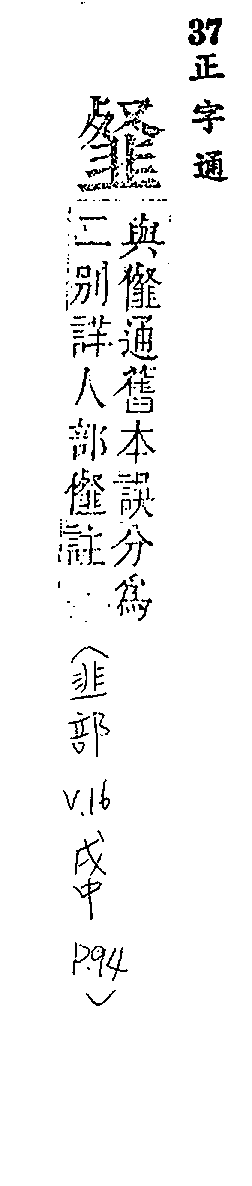 37正字通
韰
與㒠通舊本誤分爲
二別詳人部㒠註
(韭部 V.16 戌中 P.94)